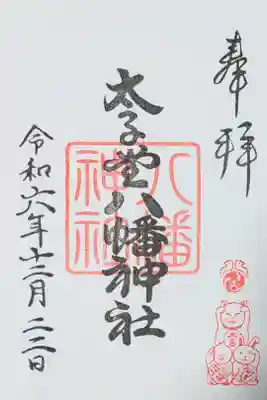 奉拝
太子堂八幡神社
八幡神社
令和六年十二月二二日